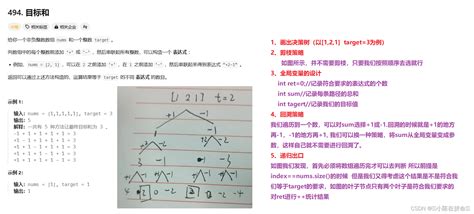 494. 目标和
中等 相关标签 相关企业
给你一个非负整数数组 nums 和一个整数 target 。
向数组中的每个整数前添加 '+' 或 '-' ，然后串联起所有整数，可以构造一个 表达式 ：
例如，nums = [2, 1] ，可以在 2 之前添加 '+' ，在 1 之前添加 '-' ，然后串联起来得到表达式 "+2-1" 。
返回可以通过上述方法构造的、运算结果等于 target 的不同 表达式 的数目。
示例 1：
输入：nums = [1,1,1,1,1], target = 3
输出：5
解释：一共有 5 种方法让最终目标和为 3 。
-1 + 1 + 1 + 1 + 1 = 3
+1 - 1 + 1 + 1 + 1 = 3
+1 + 1 - 1 + 1 + 1 = 3
+1 + 1 + 1 - 1 + 1 = 3
+1 + 1 + 1 + 1 - 1 = 3
示例 2：
输入：nums = [1], target = 1
输出：1
[1 2 1] t=2
+1 -1
1、画出决策树（以[1,2,1] target=3为例）
2、剪枝策略
如图所示，并不需要剪枝，只要我们按照顺序去选就行
3、全局变量的设计
int ret=0;//记录符合要求的表达式的个数
int sum//记录每条路径的总和
int tager//记录我们的目标值
4、回溯策略
我们遍历到一个数，可以对sum选择+1或-1.回溯的时候就是+1的地方
再-1，-1的地方再+1, 我们可以换一种策略，将sum从全局变量变成参
数，这样自己就不需要进行回溯了。
5、递归出口
如图我们发现，首先必须将数组遍历完才可以去判断 所以前提是
index==nums.size()的时候 但是我们又得考虑这个结果是不是符合我
们等于target的要求，如图的叶子节点只有两个叶子是符合我们要求的
对ret进行++统计结果